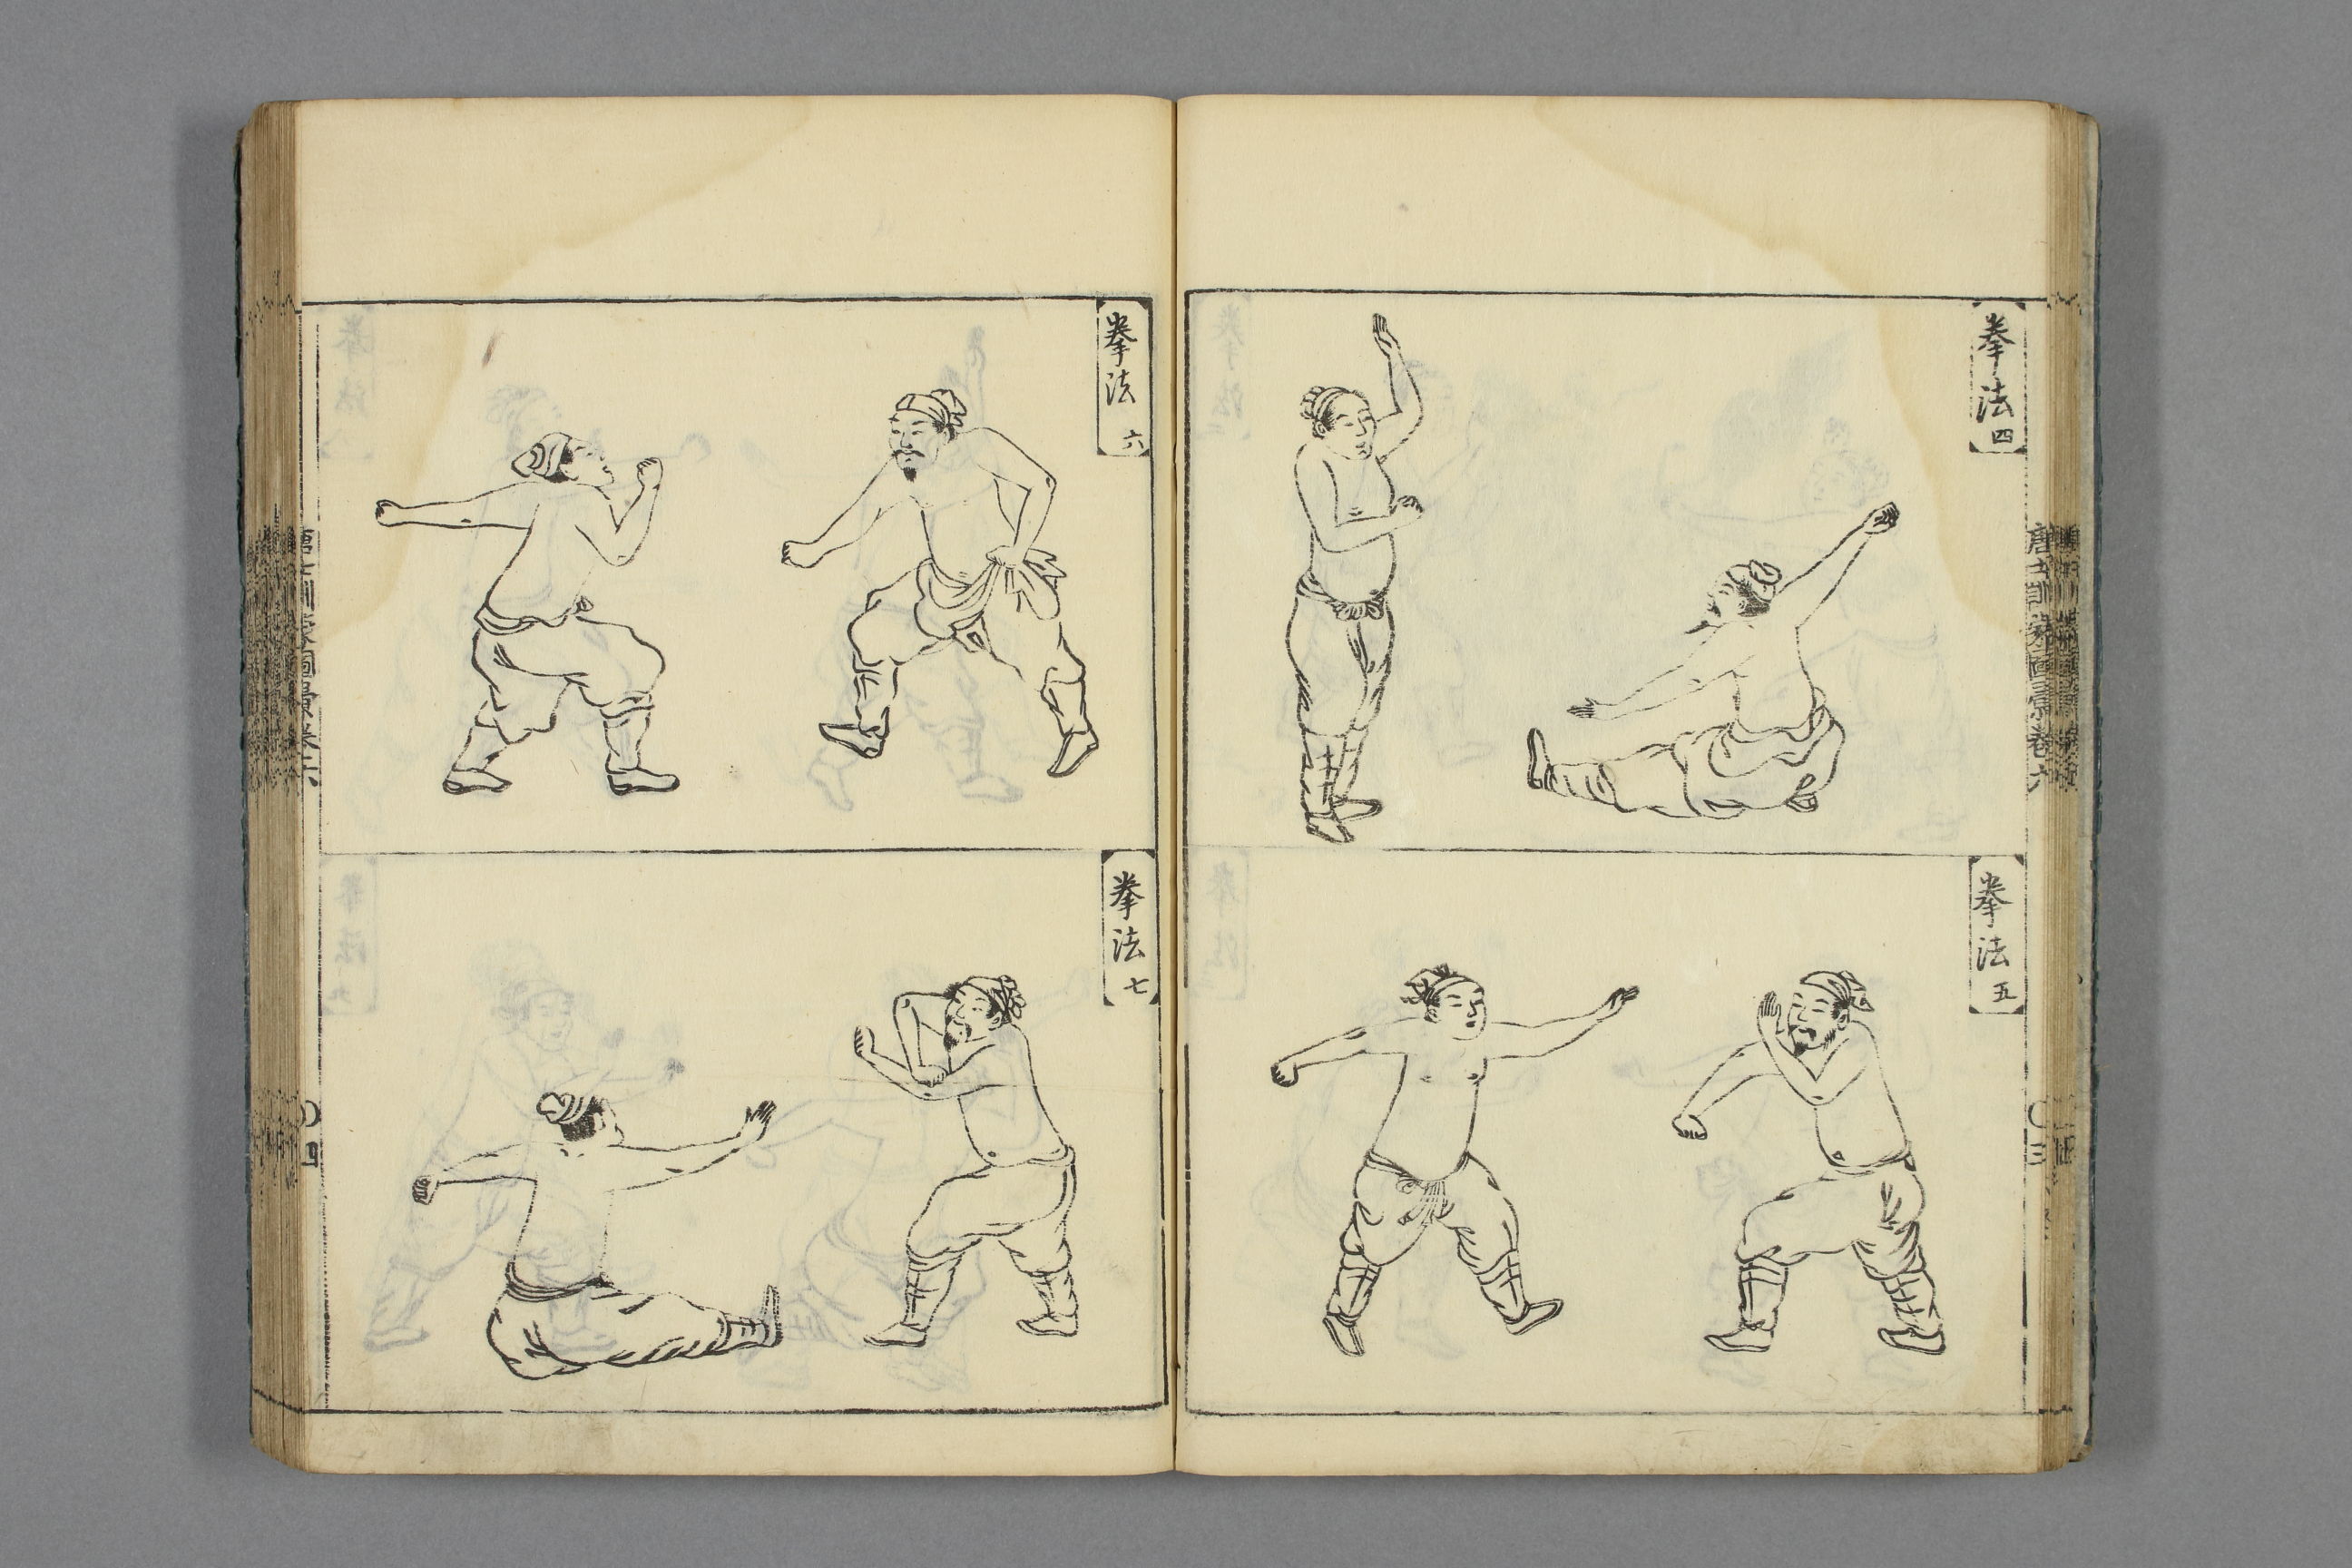 拳法四
拳法五
拳法六
拳法七
唐土訓蒙圖彙卷六
〇三
唐土訓蒙圖彙卷六
〇四